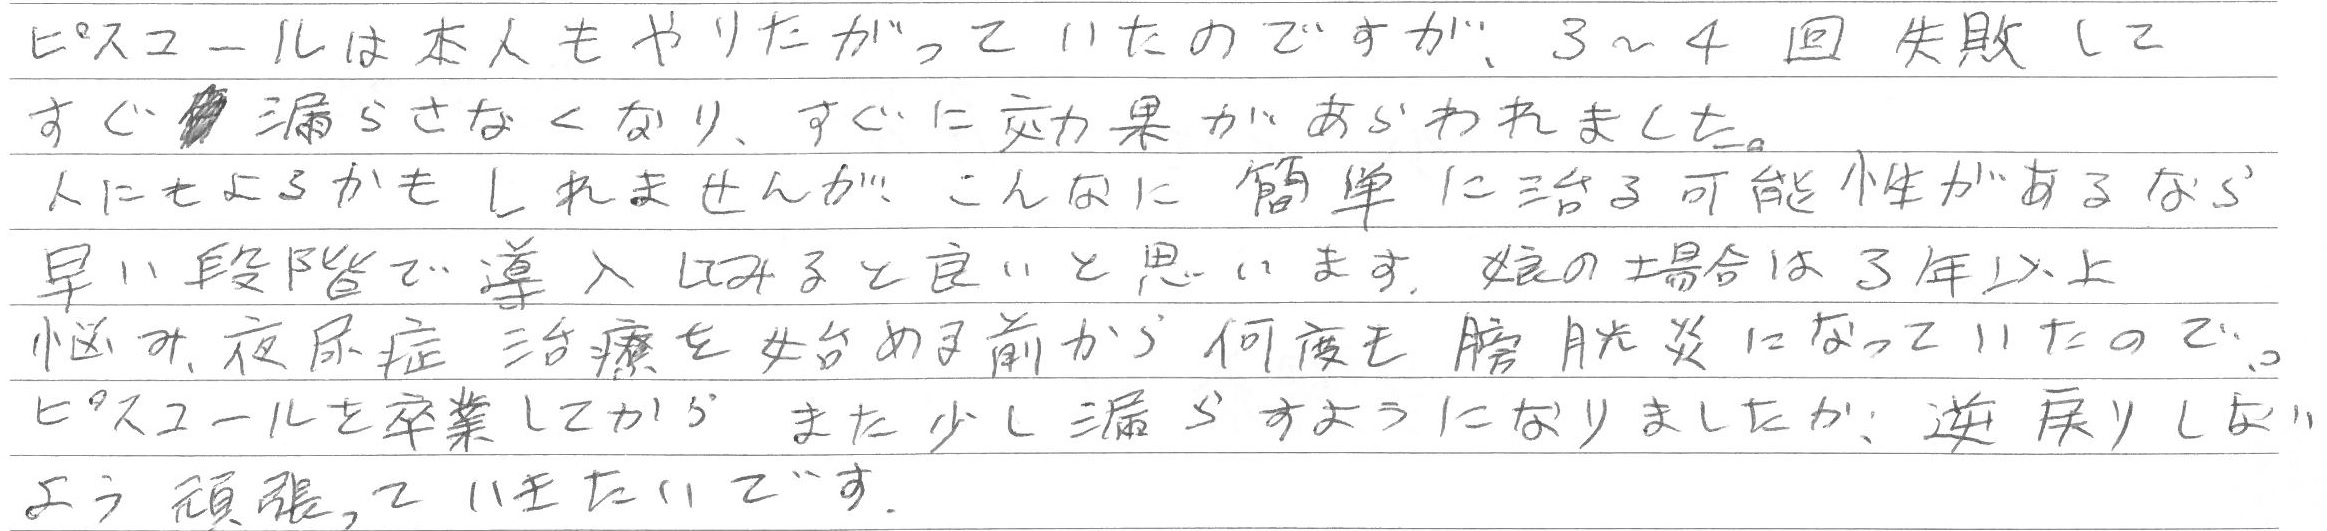 ピスコールは本人もやりたがっていたのですが、3～4回失敗して
すぐ漏らさなくなり、すぐに効果があらわれました。
人にもよるかもしれませんが、こんなに簡単に治る可能性があるなら
早い段階で導入してみると良いと思います。娘の場合は3年以上
悩み、夜尿症治療を始める前から何度も膀胱炎になっていたので。
ピスコールを卒業してから また少し漏らすようになりましたが、逆戻りしない
よう頑張っていきたいです。